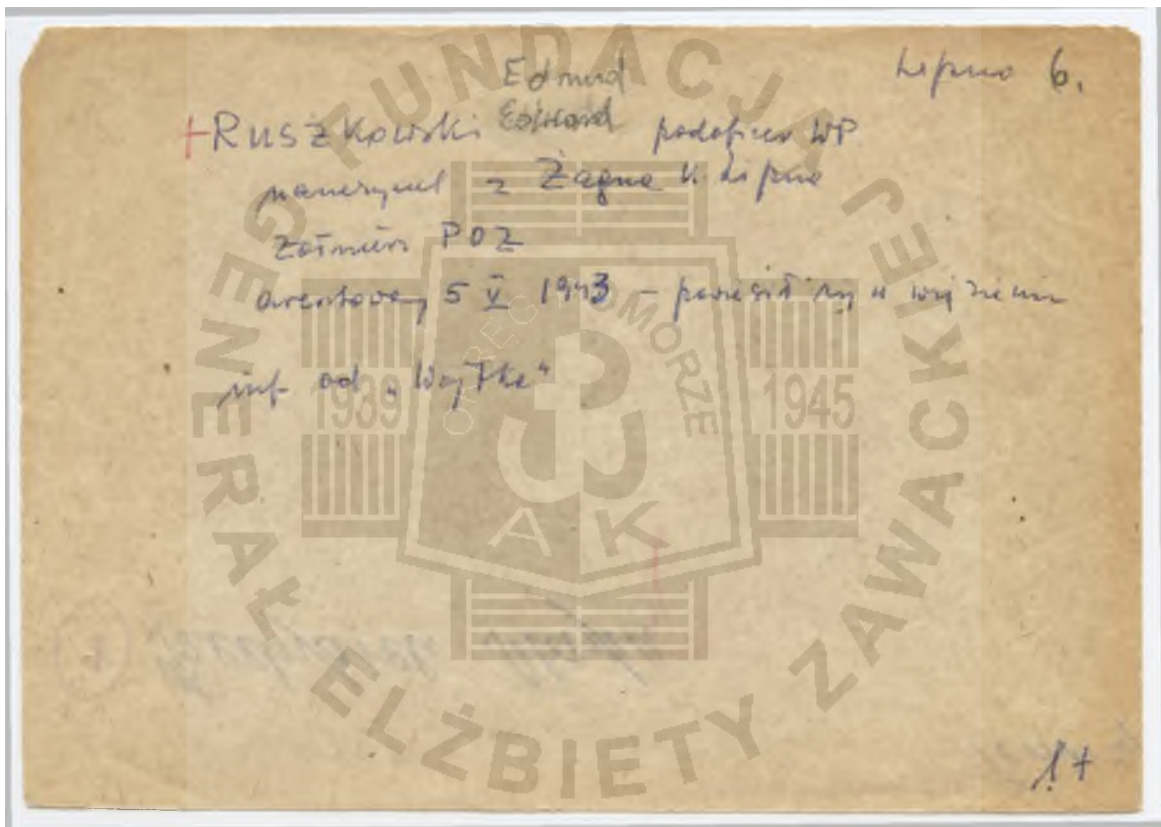 Lipno 6.
Edmund
+ Ruszkowski Edward podoficer WP
nauczyciel z Żagna k. Lipna
Żołnierz POZ
aresztowany 5 V 1943 – powiesił się w więzieniu
inf. od „Wojtka"
1+
FUNDACJA GENERAŁ ELŻBIETY ZAWACKIEJ
OKRĘG POMORZE
1939 1945
AK